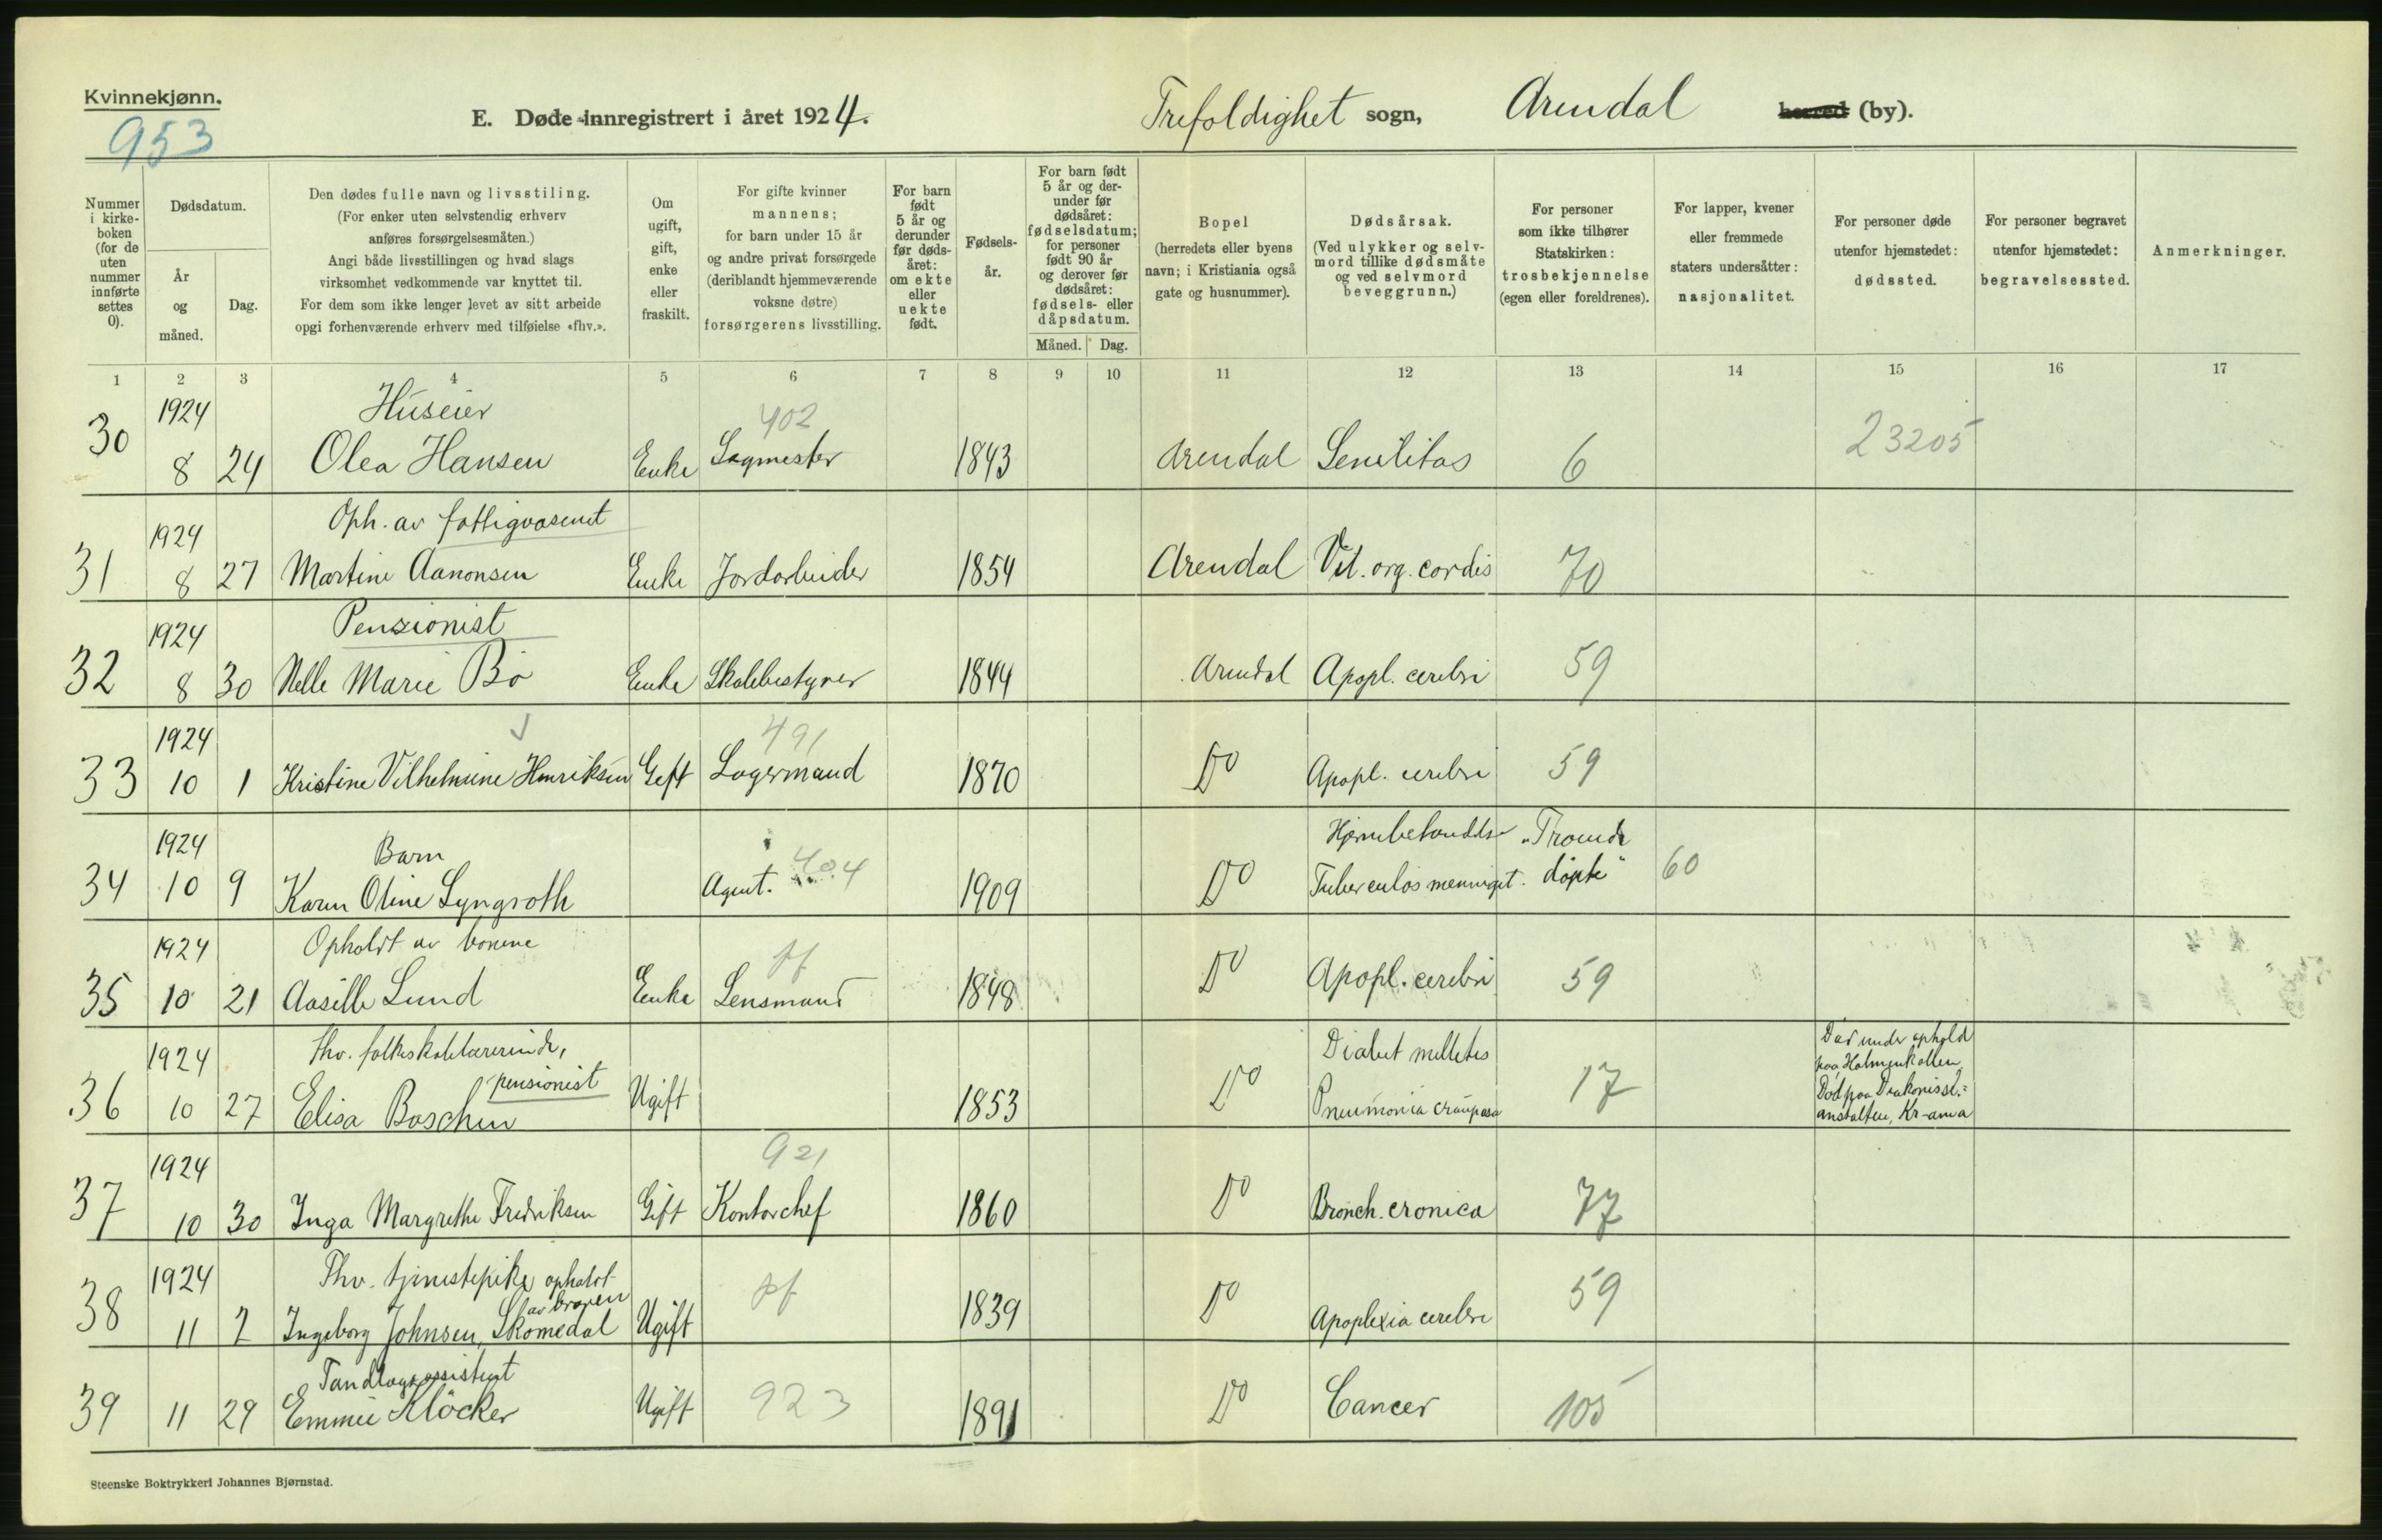 Kvinnekjønn.
953
E. Døde innregistrert i året 1924.
Trefoldighet sogn, Arendal herred (by).
Nummer i kirke-boken (for de uten nummer innførte settes 0).
Dødsdatum.
År og måned.
Dag.
Den dødes fulle navn og livsstiling.
(For enker uten selvstendig erhverv
anføres forsørgelsesmåten.)
Angi både livsstillingen og hvad slags
virksomhet vedkommende var knyttet til.
For dem som ikke lenger levet av sitt arbeide
opgi forhenværende erhverv med tilføielse «fhv.».
Om ugift, gift, enke eller fraskilt.
For gifte kvinner
mannens;
for barn under 15 år
og andre privat forsørgede
(deriblandt hjemmeværende
voksne døtre)
forsørgerens livsstilling.
For barn født 5 år og derunder før døds-året: om ekte eller uekte født.
Fødsels-år.
For barn født 5 år og der-under før dødsåret: fødselsdatum; for personer født 90 år og derover før dødsåret: fødsels- eller dåpsdatum.
Måned. Dag.
Bopel
(herredets eller byens
navn; i Kristiania også
gate og husnummer).
Dødsårsak.
(Ved ulykker og selv-
mord tillike dødsmåte
og ved selvmord
beveggrunn.)
For personer
som ikke tilhører
Statskirken:
trosbekjennelse
(egen eller foreldrenes).
For lapper, kvener
eller fremmede
staters undersåtter:
nasjonalitet.
For personer døde
utenfor hjemstedet:
dødssted.
For personer begravet
utenfor hjemstedet:
begravelsessted.
Anmerkninger.
1 2 3 4 5 6 7 8 9 10 11 12 13 14 15 16 17
1924 Huseier 402
30 8 24 Olea Hansen Enke Sagmester 1843 Arendal Senilitas 6 23205
1924 Oph. av fattigvæsenet
31 8 27 Martine Aanonsen Enke Jordarbeider 1854 Arendal Vit. org. cordis 70
1924 Pensionist
32 8 30 Nelle Marie Bö Enke Skolebestyrer 1844 Arendal Apopl. cerebri 59
1924 491
33 10 1 Kristine Vilhelmine Henriksen Gift Lagermand 1870 Do Apopl. cerebri 59
1924 Barn Hjernebetændelse "Troende
34 10 9 Karen Oline Lyngroth Agent. 404 1909 Do Tuberculos menningit. döpte" 60
1924 Opholdt av
35 10 21 Aasille Lund Enke Lensmand 1848 Do Apopl. cerebri 59
1924 fhv. folkeskolelærerinde, Diabet mellitus
pensionist
36 10 27 Elisa Boschen Ugift 1853 Do Pneumonia crouposa 17
Död under ophold
paa Holmenkollen.
Död paa Diakonisse-
anstalten, Kr-ania
1924 921
37 10 30 Inga Margrethe Fredriksen Gift Kontorchef 1860 Do Bronch. cronica 77
1924 Fhv. tjenestepike opholdt
av broren
38 11 2 Ingeborg Johnsen, Skomedal Ugift 1839 Do Apoplexia cerebri 59
Tandlægeassistent
39 11 29 Emmie Klöcker Ugift 923 1891 Do Cancer 105
Steenske Boktrykkeri Johannes Bjørnstad.